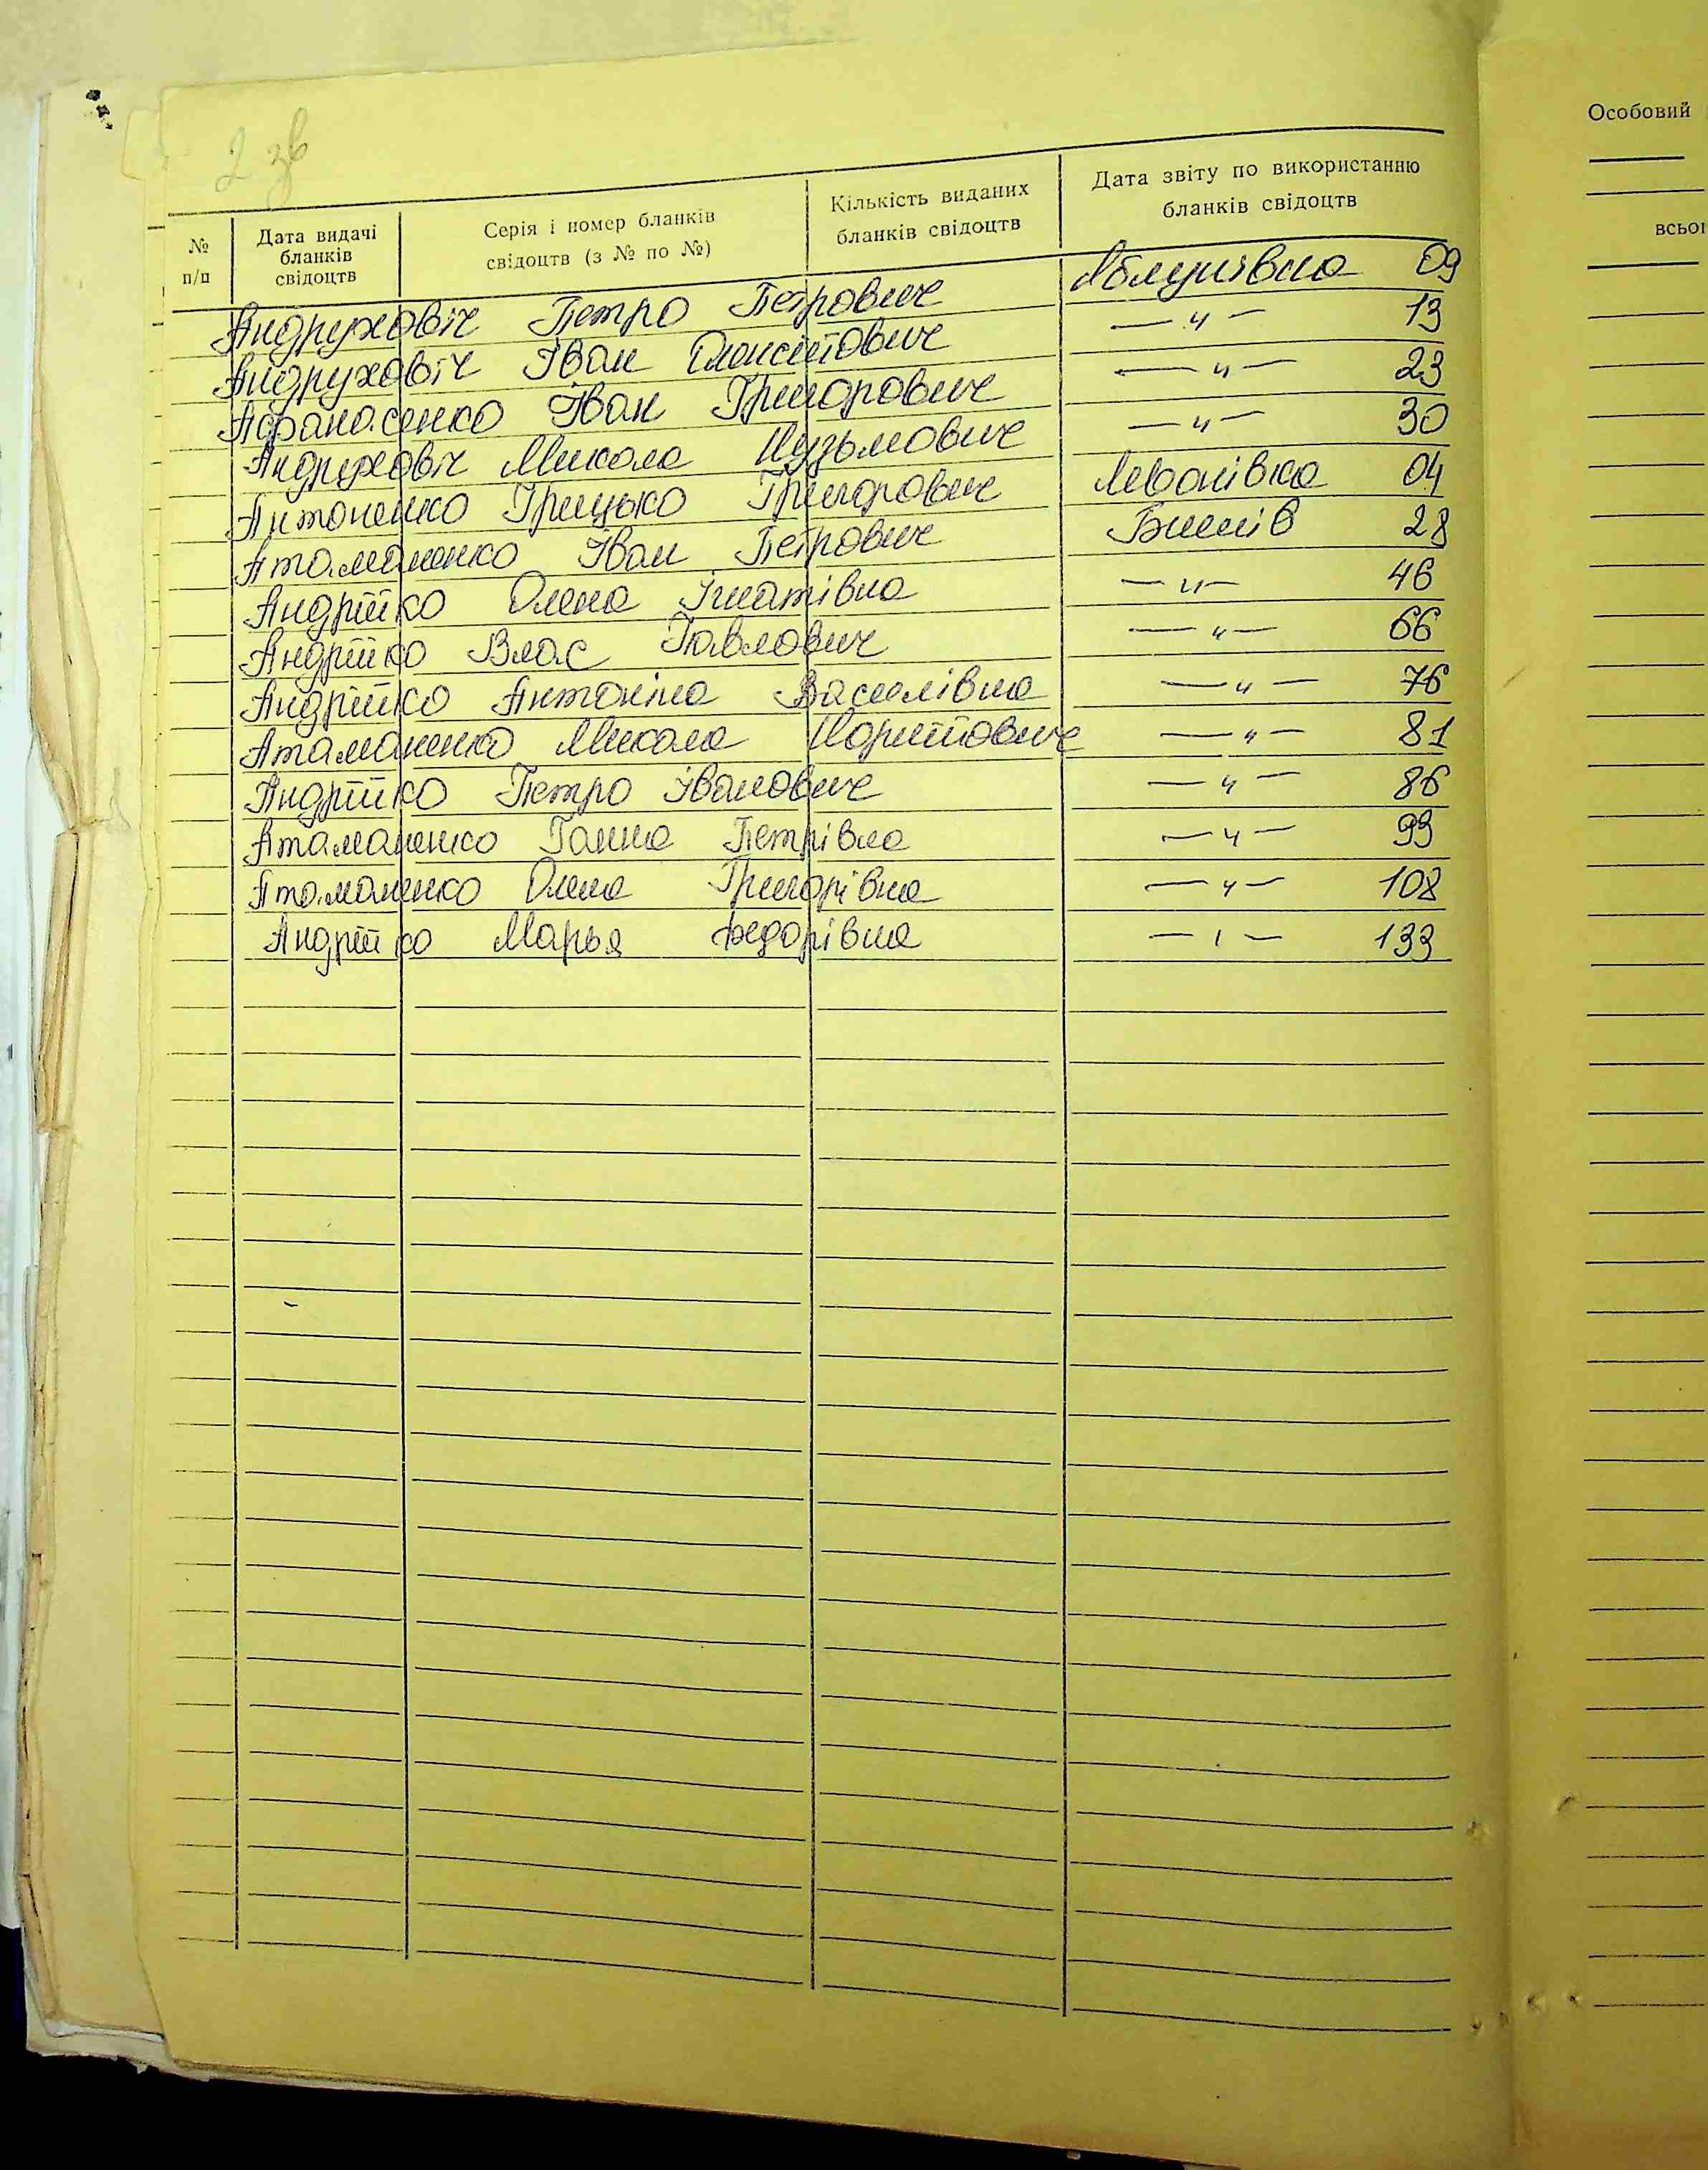 2 зв
№ п/п
Дата видачі бланків свідоцтв
Серія і номер бланків свідоцтв (з № по №)
Кількість виданих бланків свідоцтв
Дата звіту по використанню бланків свідоцтв
Андруховіч Петро Петрович 09
Андруховіч Іван Олексійович — " — 13
Афанасенко Іван Григорович — " — 23
Андруховіч Микола Кузьмович — " — 30
Антоненко Грицько Григорович Леванівка 04
Атаманенко Іван Петрович 28
Андрійко Олена Ігнатівна — " — 46
Андрійко Влас Павлович — " — 66
Андрійко Антоніна Василівна — " — 76
Атаманенко Микола — " — 81
Андрійко Петро Іванович — " — 86
Атаманенко Ганна Петрівна — " — 99
Атаманенко Олена Григорівна — " — 108
Андрійко Марья Федорівна — " — 133
Особовий
всьог